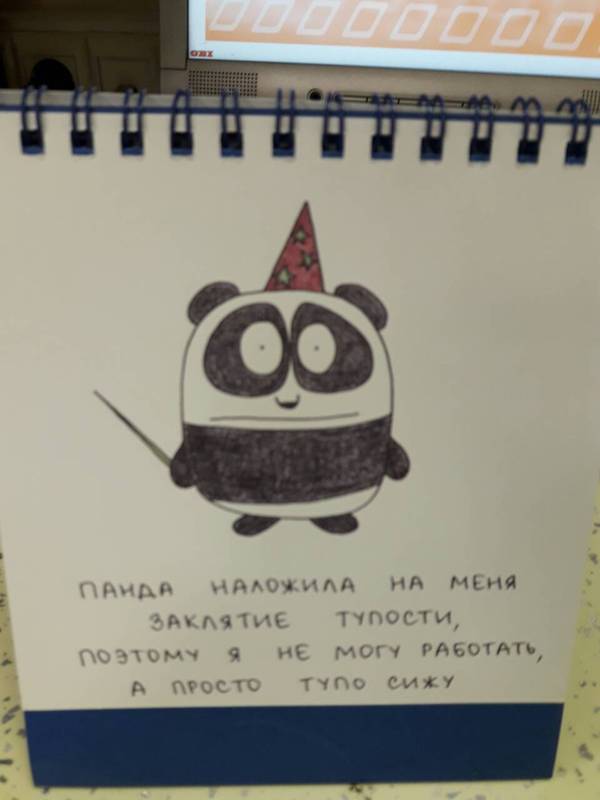 ПАНДА НАЛОЖИЛА НА МЕНЯ
ЗАКЛЯТИЕ ТУПОСТИ,
ПОЭТОМУ Я НЕ МОГУ РАБОТАТЬ,
А ПРОСТО ТУПО СИЖУ